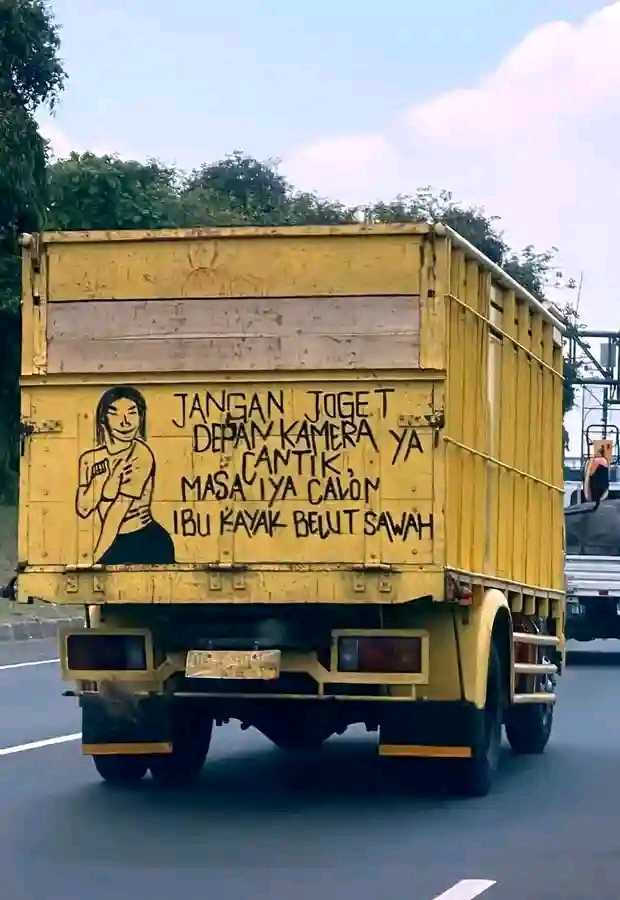 JANGAN JOGET
DEPAN KAMERA YA
CANTIK,
MASA IYA CALON
IBU KAYAK BELUT SAWAH